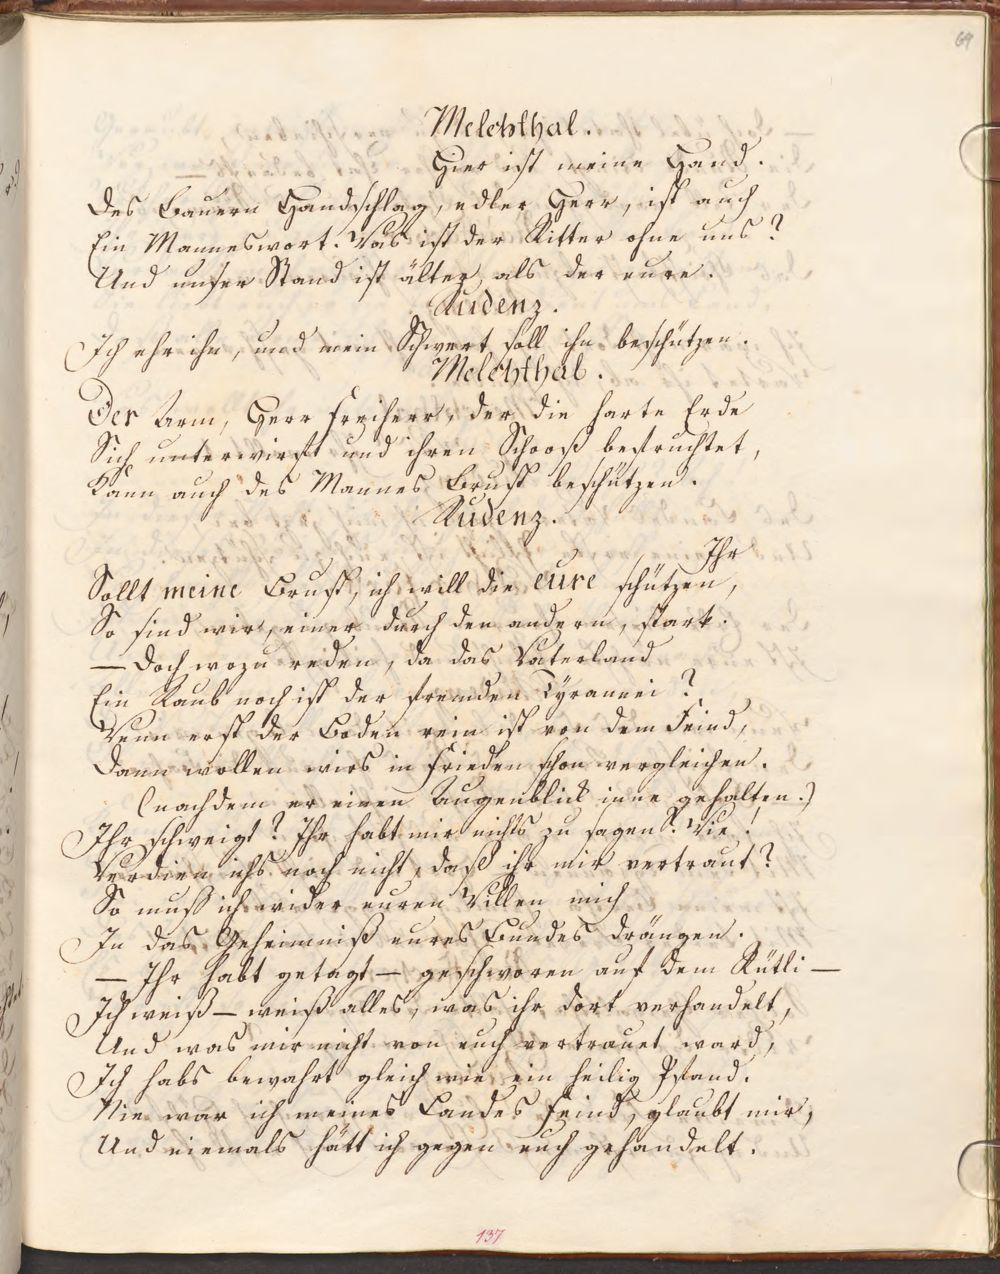 69
Melchthal.
Hier ist meine Hand.
Des Bauern Handschlag, edler Herr, ist auch
Ein Manneswort. Was ist der Ritter ohne uns?
Und unser Stand ist älter, als der eure.
Rudenz.
Ich ehr ihn, und mein Schwert soll ihn beschützen.
Melchthal.
Der Arm, Herr Freiherr, der die harte Erde
Sich unterwirft und ihren Schooß befruchtet,
Kann auch des Mannes Brust beschützen.
Rudenz.
Ihr
Sollt meine Brust, ich will die eure schützen,
So sind wir, einer durch den andern, stark.
— Doch wozu reden, da das Vaterland
Ein Raub noch ist der fremden Tyrannei?
Wenn erst der Boden rein ist von dem Feind,
Dann wollen wirs in Frieden schon vergleichen.
(nachdem er einen Augenblick inne gehalten.)
Ihr schweigt? Ihr habt mir nichts zu sagen? Wie!
Verdien ichs noch nicht, daß ihr mir vertraut?
So muß ich wider euren Willen mich
In das Geheimniß eures Bundes drängen.
— Ihr habt getagt — geschworen auf dem Rütli —
Ich weiß — weiß alles, was ihr dort verhandelt,
Und was mir nicht von euch vertrauet ward,
Ich habs bewahrt gleich wie ein heilig Pfand.
Nie war ich meines Landes Feind, glaubt mir,
Und niemals hätt ich gegen euch gehandelt.
137